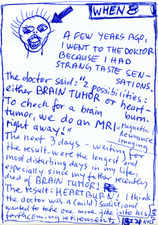 WHEN 8
A FEW YEARS AGO,
I WENT TO THE DOKTOR
BECAUSE I HAD
STRANG TASTE SEN-
SATIONS.
The doctor said: "2 possibilities:
either BRAIN TUMOR or heart-
burn.
To check for a brain
tumor, we do an MRI
Magnetic
imaging
right away!"
The next 3 days - waiting for
the result were the longest, and
most disturbing days in my life,
especially since my father recently
died of BRAIN TUMOR!
The result: HEARTBURN! I think
the doctor was a (mild) Sadist, and
wanted to take one more joke into his
forthcoming retirement.